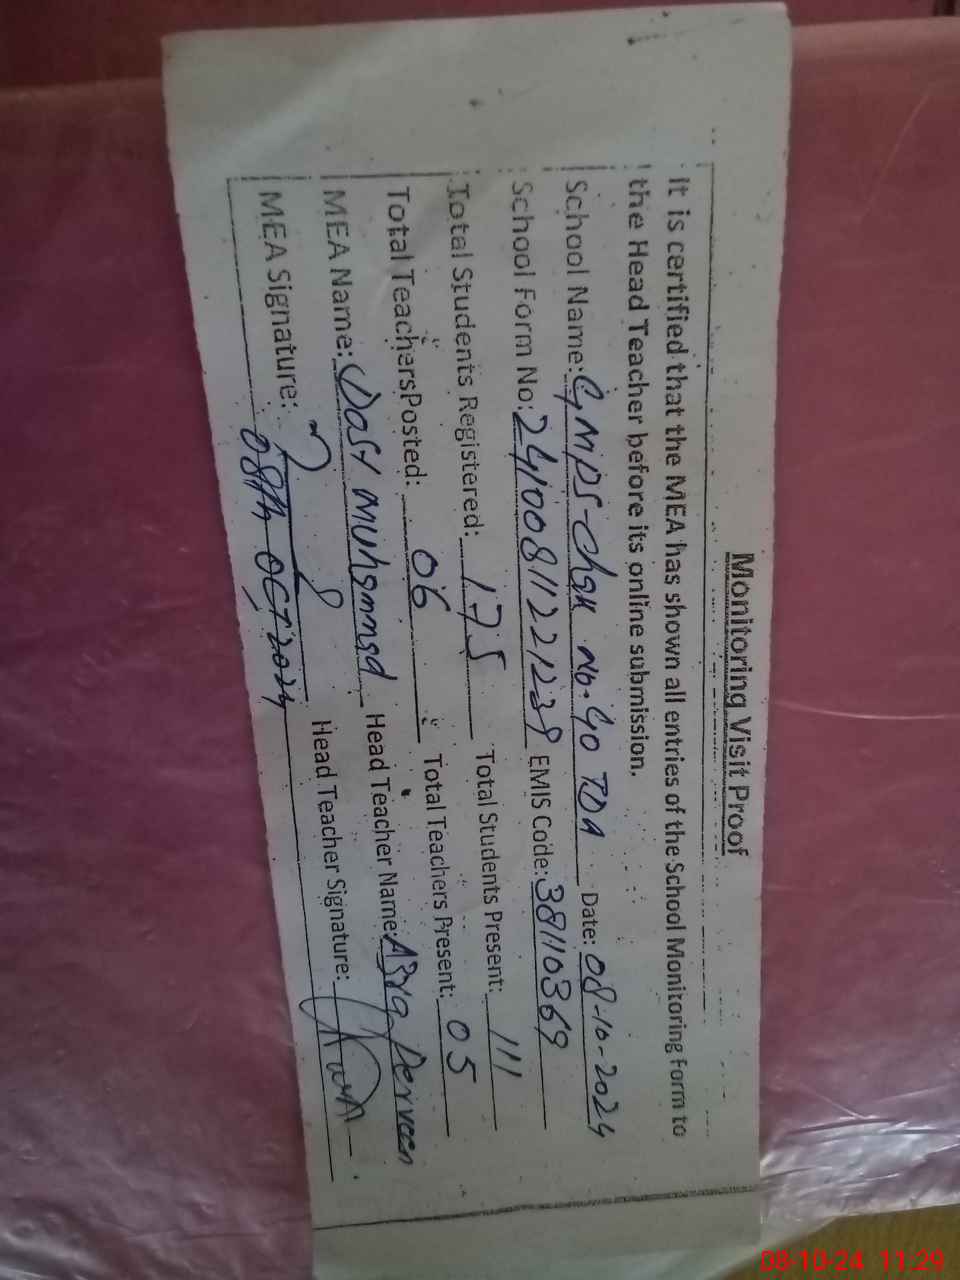 Monitoring Visit Proof
It is certified that the MEA has shown all entries of the School Monitoring Form to
the Head Teacher before its online submission.
School Name: GMPS-Chak No. 40 TDA Date: 08-10-2024
School Form No: EMIS Code: 38110369
Total Students Registered: 175 Total Students Present: 111
Total Teachers Posted: 06 Total Teachers Present: 05
MEA Name: Dost Muhammad Head Teacher Name: Perveen
MEA Signature: Head Teacher Signature:
08th OCT 2024
08-10-24 11:29